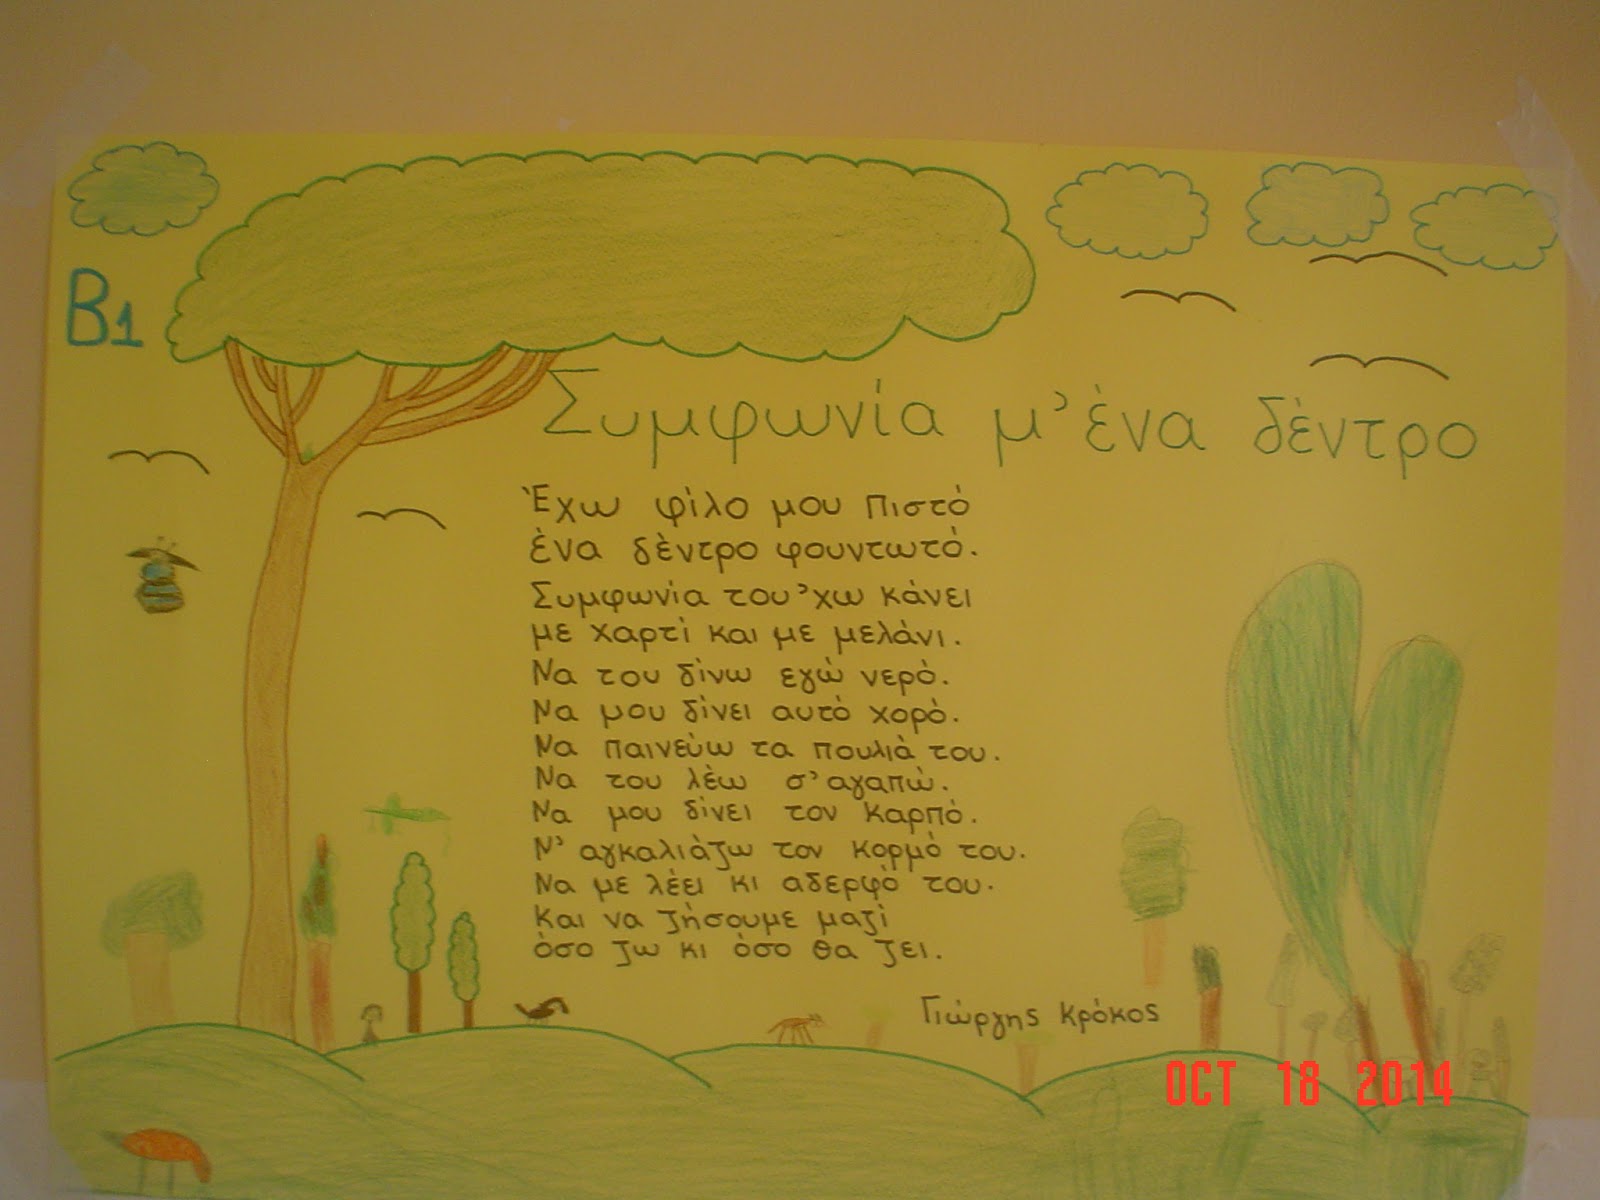 Β1
Συμφωνία μ' ένα δέντρο
Έχω φίλο μου πιστό
ένα δέντρο φουντωτό.
Συμφωνία του 'χω κάνει
με χαρτί και με μελάνι.
Να του δίνω εγώ νερό.
Να μου δίνει αυτό χορό.
Να παινεύω τα πουλιά του.
Να του λέω σ' αγαπώ.
Να μου δίνει τον καρπό.
Ν' αγκαλιάζω τον κορμό του.
Να με λέει κι αδερφό του.
Και να ζήσουμε μαζί
όσο ζω κι όσο θα ζει.
Γιώργης Κρόκος
OCT 18 2014